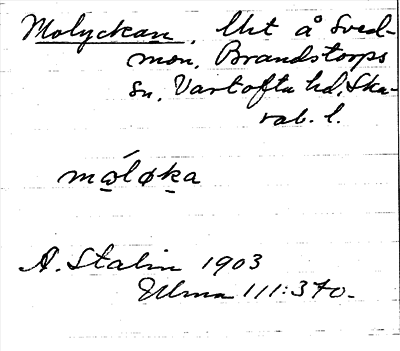 Molyckan, Utt å Sved-
mon, Brandstorps
sn, Vartofta hd, Ska-
rab. l.
mọ́løka
A. Stalin 1903
Ulma 111:370.